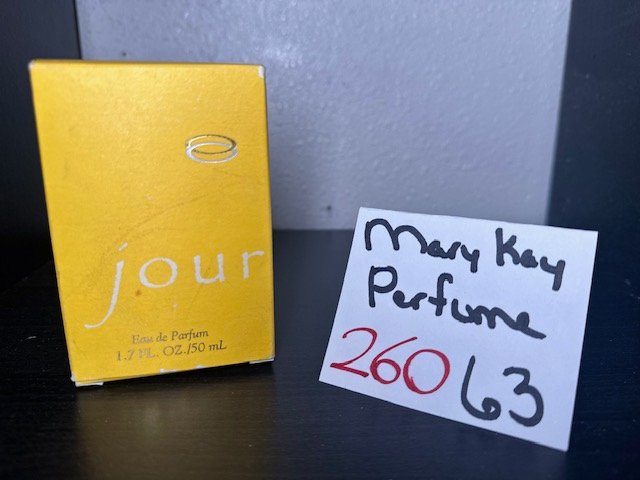 jour
Eau de Parfum
1.7 FL. OZ./50 mL
Mary Kay
Perfume
260 63